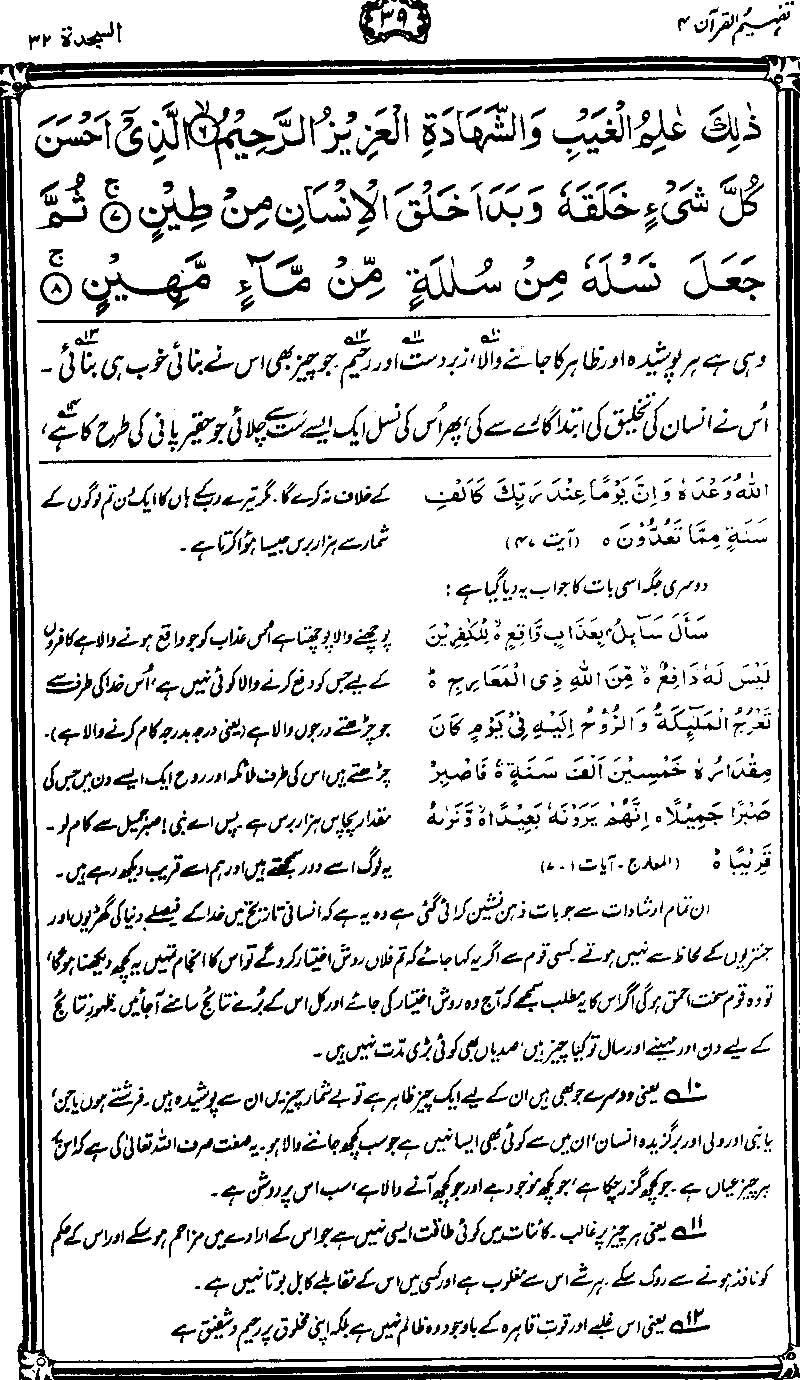 تفہیم القرآن ۴
۳۹
السجدۃ ۳۲
ذٰلِكَ عٰلِمُ الْغَيْبِ وَالشَّهَادَةِ الْعَزِيْزُ الرَّحِيْمُ ۙ﴿۶﴾ الَّذِيْٓ اَحْسَنَ
كُلَّ شَيْءٍ خَلَقَهٗ وَبَدَاَ خَلْقَ الْاِنْسَانِ مِنْ طِيْنٍ ۚ﴿۷﴾ ثُمَّ
جَعَلَ نَسْلَهٗ مِنْ سُلٰلَةٍ مِّنْ مَّآءٍ مَّهِيْنٍ ۚ﴿۸﴾
وہی ہے ہر پوشیدہ اور ظاہر کا جاننے والا،۱۰ زبردست۱۱ اور رحیم۱۲۔ جو چیز بھی اس نے بنائی خوب ہی بنائی۱۳۔
اُس نے انسان کی تخلیق کی ابتدا گارے سے کی، پھر اُس کی نسل ایک ایسے ست سے چلائی جو حقیر پانی کی طرح کا ہے۱۴،
اللهُ وَعْدَهٗ وَاِنَّ يَوْمًا عِنْدَ رَبِّكَ كَاَلْفِ
سَنَةٍ مِّمَّا تَعُدُّوْنَ ○ (آیت ۴۷)
کے خلاف نہ کرے گا۔ مگر تیرے رب کے ہاں کا ایک دن تم لوگوں کے
شمار سے ہزار برس جیسا ہوا کرتا ہے۔
دوسری جگہ اسی بات کا جواب یہ دیا گیا ہے:
سَاَلَ سَآئِلٌۢ بِعَذَابٍ وَّاقِعٍ ○ لِّلْكٰفِرِيْنَ
لَيْسَ لَهٗ دَافِعٌ ○ مِّنَ اللهِ ذِي الْمَعَارِجِ ○
تَعْرُجُ الْمَلٰٓئِكَةُ وَالرُّوْحُ اِلَيْهِ فِيْ يَوْمٍ كَانَ
مِقْدَارُهٗ خَمْسِيْنَ اَلْفَ سَنَةٍ ○ فَاصْبِرْ
صَبْرًا جَمِيْلًا ○ اِنَّهُمْ يَرَوْنَهٗ بَعِيْدًا ○ وَّنَرٰىهُ
قَرِيْبًا ○ (المعارج۔ آیات ۱۔۷)
پوچھنے والا پوچھتا ہے اُس عذاب کو جو واقع ہونے والا ہے کافروں
کے لیے جس کو دفع کرنے والا کوئی نہیں ہے، اُس خدا کی طرف سے
جو چڑھتے درجوں والا ہے (یعنی درجہ بدرجہ کام کرنے والا ہے)۔
چڑھتے ہیں اس کی طرف ملائکہ اور روح ایک ایسے دن میں جس کی
مقدار پچاس ہزار برس ہے۔ پس اے نبی! صبرِ جمیل سے کام لو۔
یہ لوگ اسے دور سمجھتے ہیں اور ہم اسے قریب دیکھ رہے ہیں۔
ان تمام ارشادات سے جو بات ذہن نشین کرائی گئی ہے وہ یہ ہے کہ انسانی تاریخ میں خدا کے فیصلے دنیا کی گھڑیوں اور
جنتریوں کے لحاظ سے نہیں ہوتے۔ کسی قوم سے اگر یہ کہا جائے کہ تم فلاں روش اختیار کرو گے تو اس کا انجام تمہیں یہ کچھ دیکھنا ہوگا،
تو وہ قوم سخت احمق ہوگی اگر اس کا یہ مطلب سمجھے کہ آج وہ روش اختیار کی جائے اور کل اس کے بُرے نتائج سامنے آ جائیں۔ ظہورِ نتائج
کے لیے دن اور مہینے اور سال تو کیا چیز ہیں، صدیاں بھی کوئی بڑی مدت نہیں ہیں۔
۱۰ یعنی دوسرے جو بھی ہیں ان کے لیے ایک چیز ظاہر ہے تو بے شمار چیزیں ان سے پوشیدہ ہیں۔ فرشتے ہوں یا جن،
یا نبی اور ولی اور برگزیدہ انسان، ان میں سے کوئی بھی ایسا نہیں ہے جو سب کچھ جاننے والا ہو۔ یہ صفت صرف اللہ تعالیٰ کی ہے کہ اس پر
ہر چیز عیاں ہے۔ جو کچھ گزر چکا ہے، جو کچھ موجود ہے، اور جو کچھ آنے والا ہے، سب اس پر روشن ہے۔
۱۱ یعنی ہر چیز پر غالب۔ کائنات میں کوئی طاقت ایسی نہیں ہے جو اس کے ارادے میں مزاحم ہو سکے اور اس کے حکم
کو نافذ ہونے سے روک سکے۔ ہر شے اس سے مغلوب ہے اور کسی میں اس کے مقابلے کا بل بوتا نہیں ہے۔
۱۲ یعنی اس غلبے اور قوتِ قاہرہ کے باوجود وہ ظالم نہیں ہے بلکہ اپنی مخلوق پر رحیم و شفیق ہے